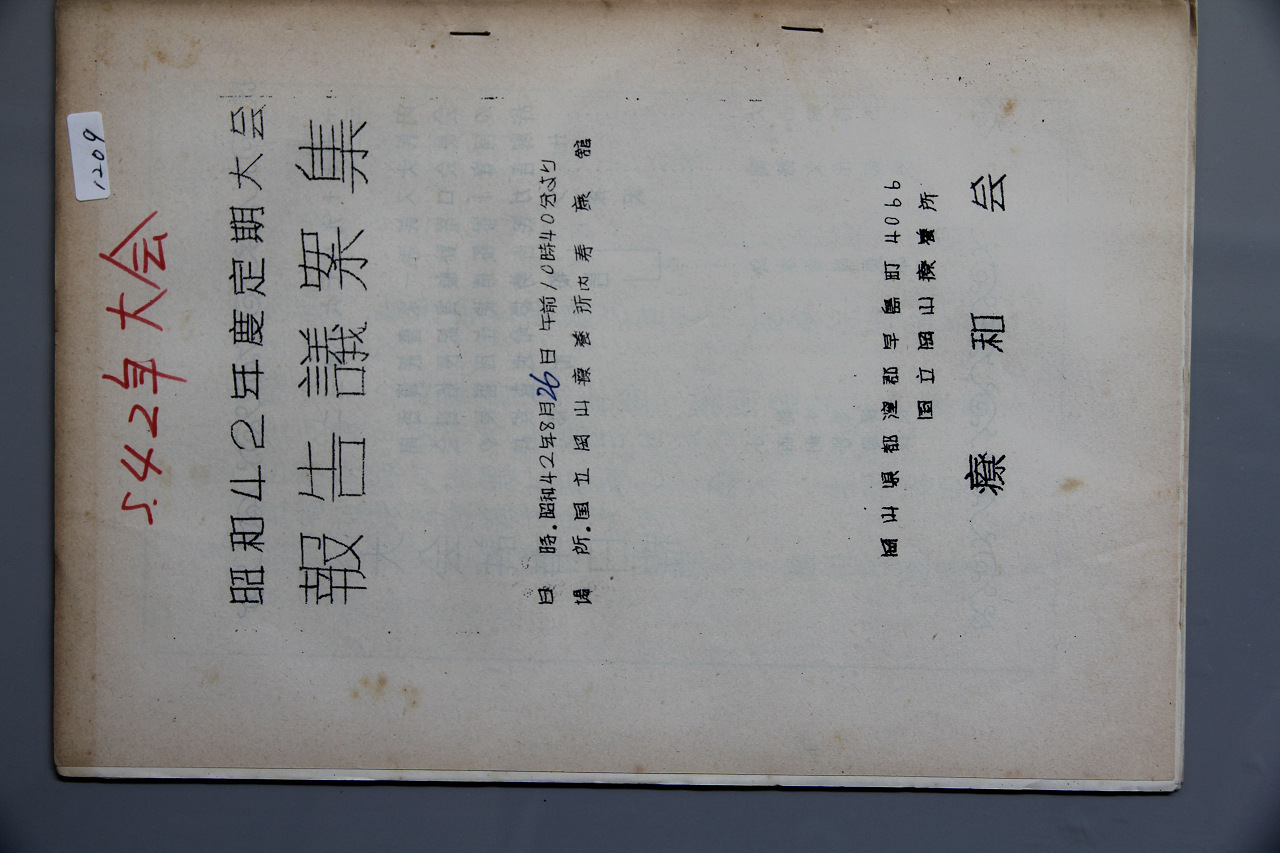 1209
S.42年大会
昭和42年度定期大会
報告議案集
日 時.昭和42年8月26日午前10時40分より
場 所.国立岡山療養所内寿康館
岡山県都窪郡早島町4066
国立岡山療養所
療和会